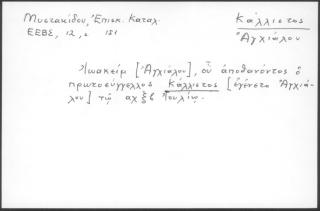 Μυστακίδου, Ἐπισκ. Καταλ.
Κάλλιστος
ΕΕΒΣ, 12, 151
Ἀγχιάλου
Ἰωακείμ [Ἀγχιάλου], οὗ ἀποθανόντος ὁ
πρωτοσύγγελλος Κάλλιστος [ἐγένετο Ἀγχιά-
λου] τῷ αχξβ Ἰουλίῳ.